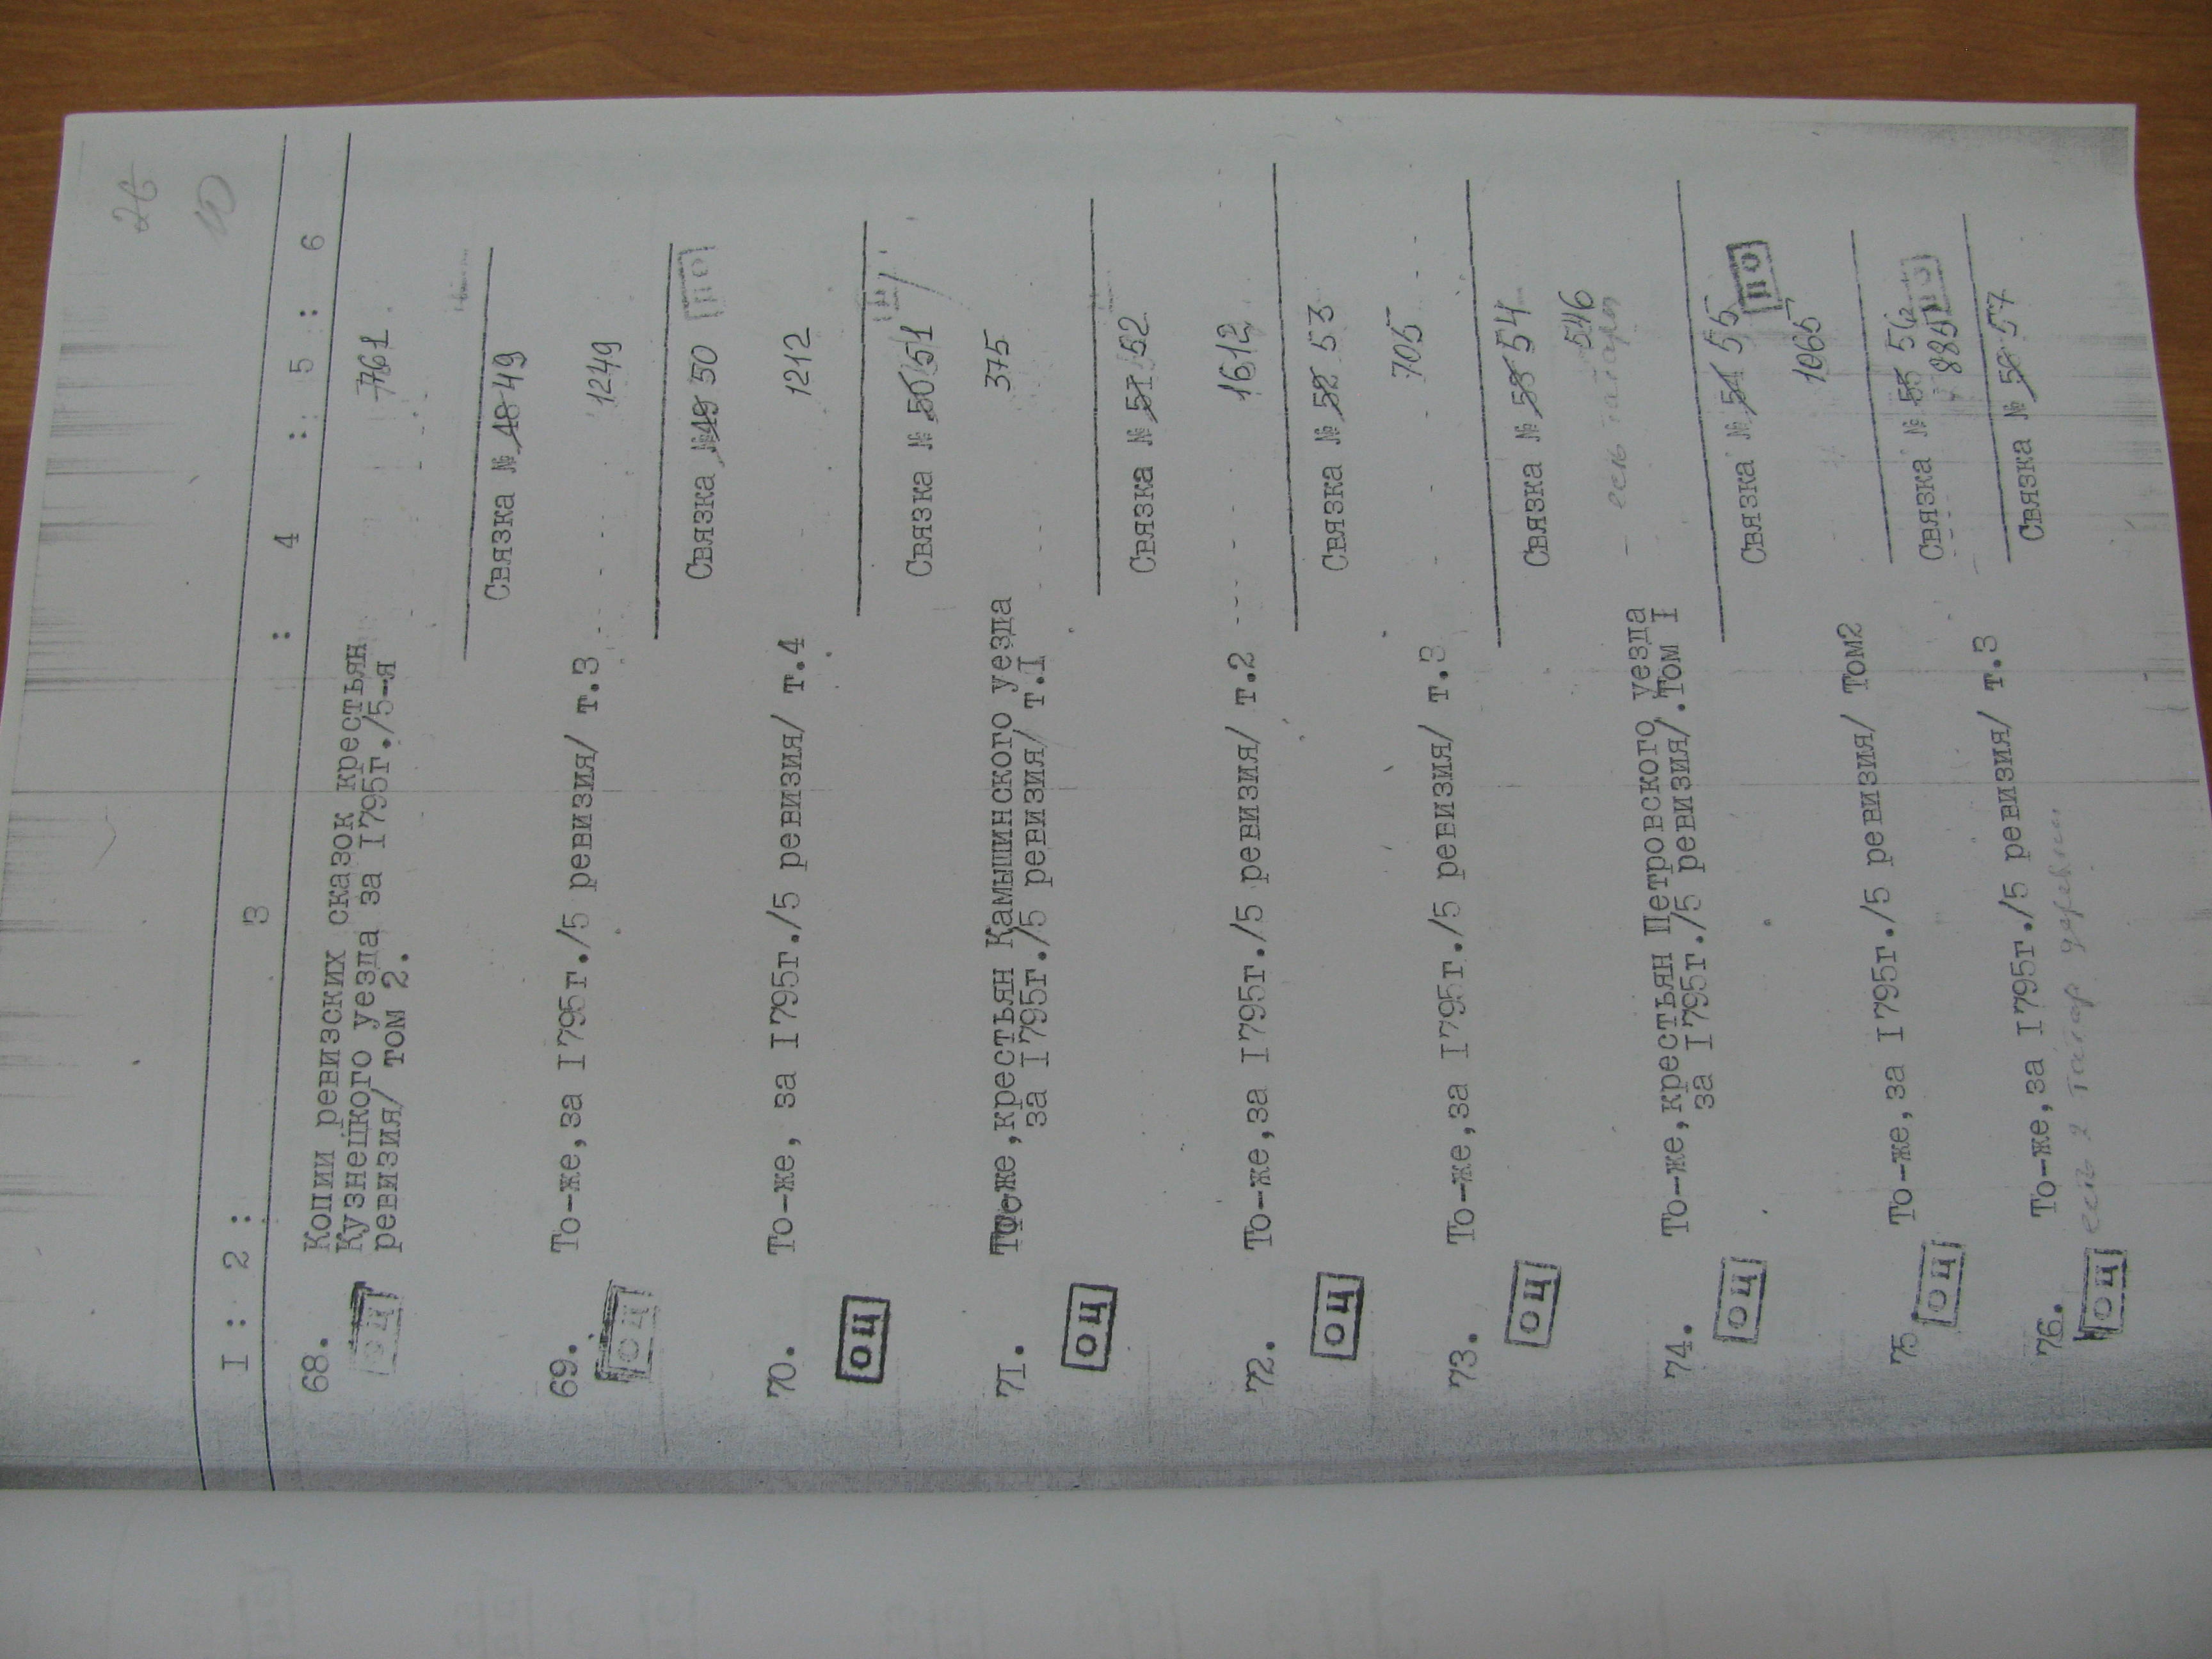 26
10
I : 2 : 3 : 4 : 5 : 6
68. Копии ревизских сказок крестьян
Кузнецкого уезда за I795г./5-я
ревизия/ том 2.
761
ОЦ
Связка № 48 49
69. То-же,за I795г./5 ревизия/ т.3
1249
ОЦ
Связка №49 50
ПО
70. То-же, за I795г./5 ревизия/ т.4
1212
ОЦ
Связка № 50 51
7I. То-же,крестьян Камышинского уезда
за I795г./5 ревизия/ т.I
375
ОЦ
Связка № 51 52
72. То-же,за I795г./5 ревизия/ т.2
1612
ОЦ
Связка № 52 53
73. То-же,за I795г./5 ревизия/ т.3
705
ОЦ
Связка № 53 54
74. То-же,крестьян Петровского уезда
за I795г./5 ревизия/.Том I
546
– есть татары
ОЦ
Связка № 54 55
ПО
75 То-же,за I795г./5 ревизия/ Том2
1065
ОЦ
Связка № 55 56
ПО
76. То-же,за I795г./5 ревизия/ т.3
885
есть 2 татар деревни
ОЦ
Связка № 56 57